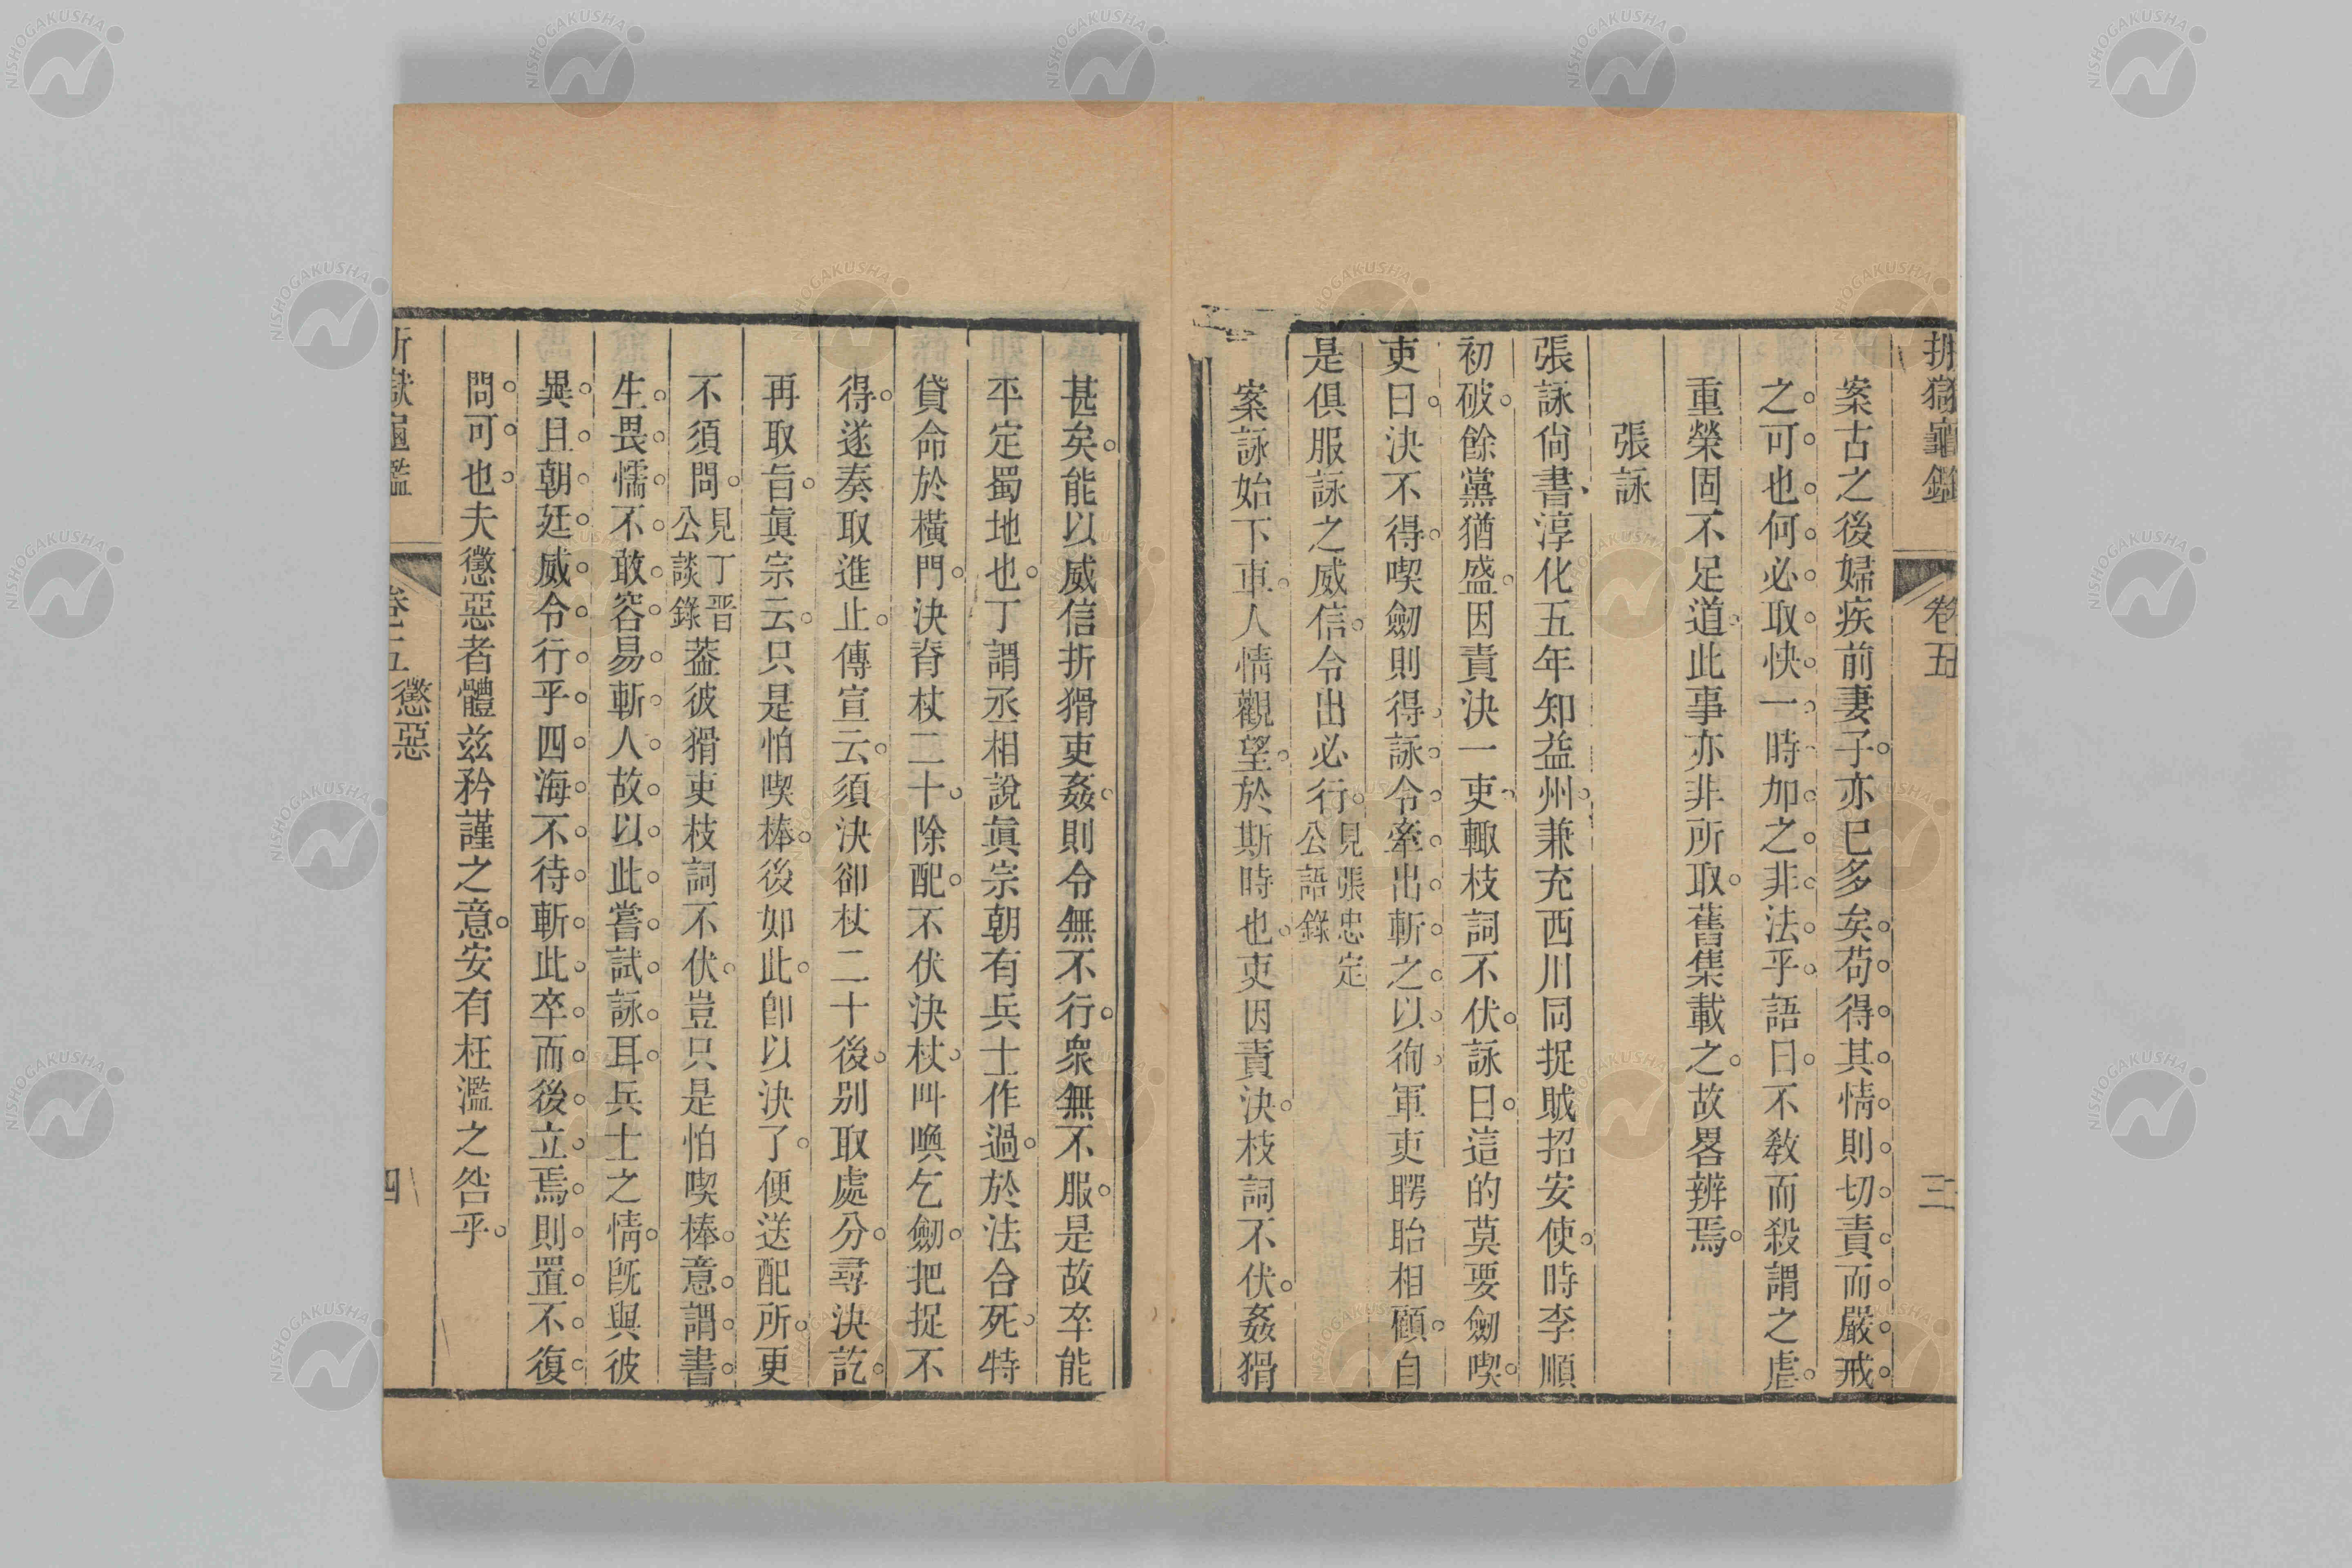 折獄龜鑑 卷五 三
案古之後婦疾前妻子。亦已多矣。苟得其情則切責而嚴戒
之可也何必取快一時加之非法乎語曰。不教而殺謂之虐。
重榮固不足道。此事亦非所取。舊集載之。故畧辨焉。
張詠
張詠尙書、淳化五年知益州。兼充西川同捉賊招安使。時李順
初破。餘黨猶盛。因責決一吏。輙枝詞不伏。詠曰。這的莫要劒喫。
吏曰。決不得。喫劒則得。詠令牽出斬之以徇軍吏聘眙相顧。自
是俱服詠之威信。令出必行。見張忠定公語錄
案詠始下車。人情觀望。於斯時也。吏因責決。枝詞不伏。姦猾
甚矣。能以威信折猾吏姦。則令無不行。衆無不服。是故卒能
平定蜀地也。丁謂丞相說眞宗朝有兵士作過。於法合死。特
貸命於橫門。決脊杖二十。除配。不伏決杖。叫喚乞劒。把捉不
得。遂奏取進止。傳宣云。須決卻杖二十後。别取處分。尋決訖。
再取旨。眞宗云。只是怕喫棒。後如此。卽以決了。便送配所。更
不須問。見丁晋公談錄葢彼猾吏枝詞不伏。豈只是怕喫棒。意謂書
生畏懦不敢容易斬人故以此嘗試詠耳。兵士之情。旣與彼
異。且朝廷威令行乎四海不待斬此卒而後立焉則置不復
問可也。夫懲惡者體兹矜謹之意。安有枉濫之咎乎。
折獄龜鑑 卷五 懲惡 四
NISHOGAKUSHA